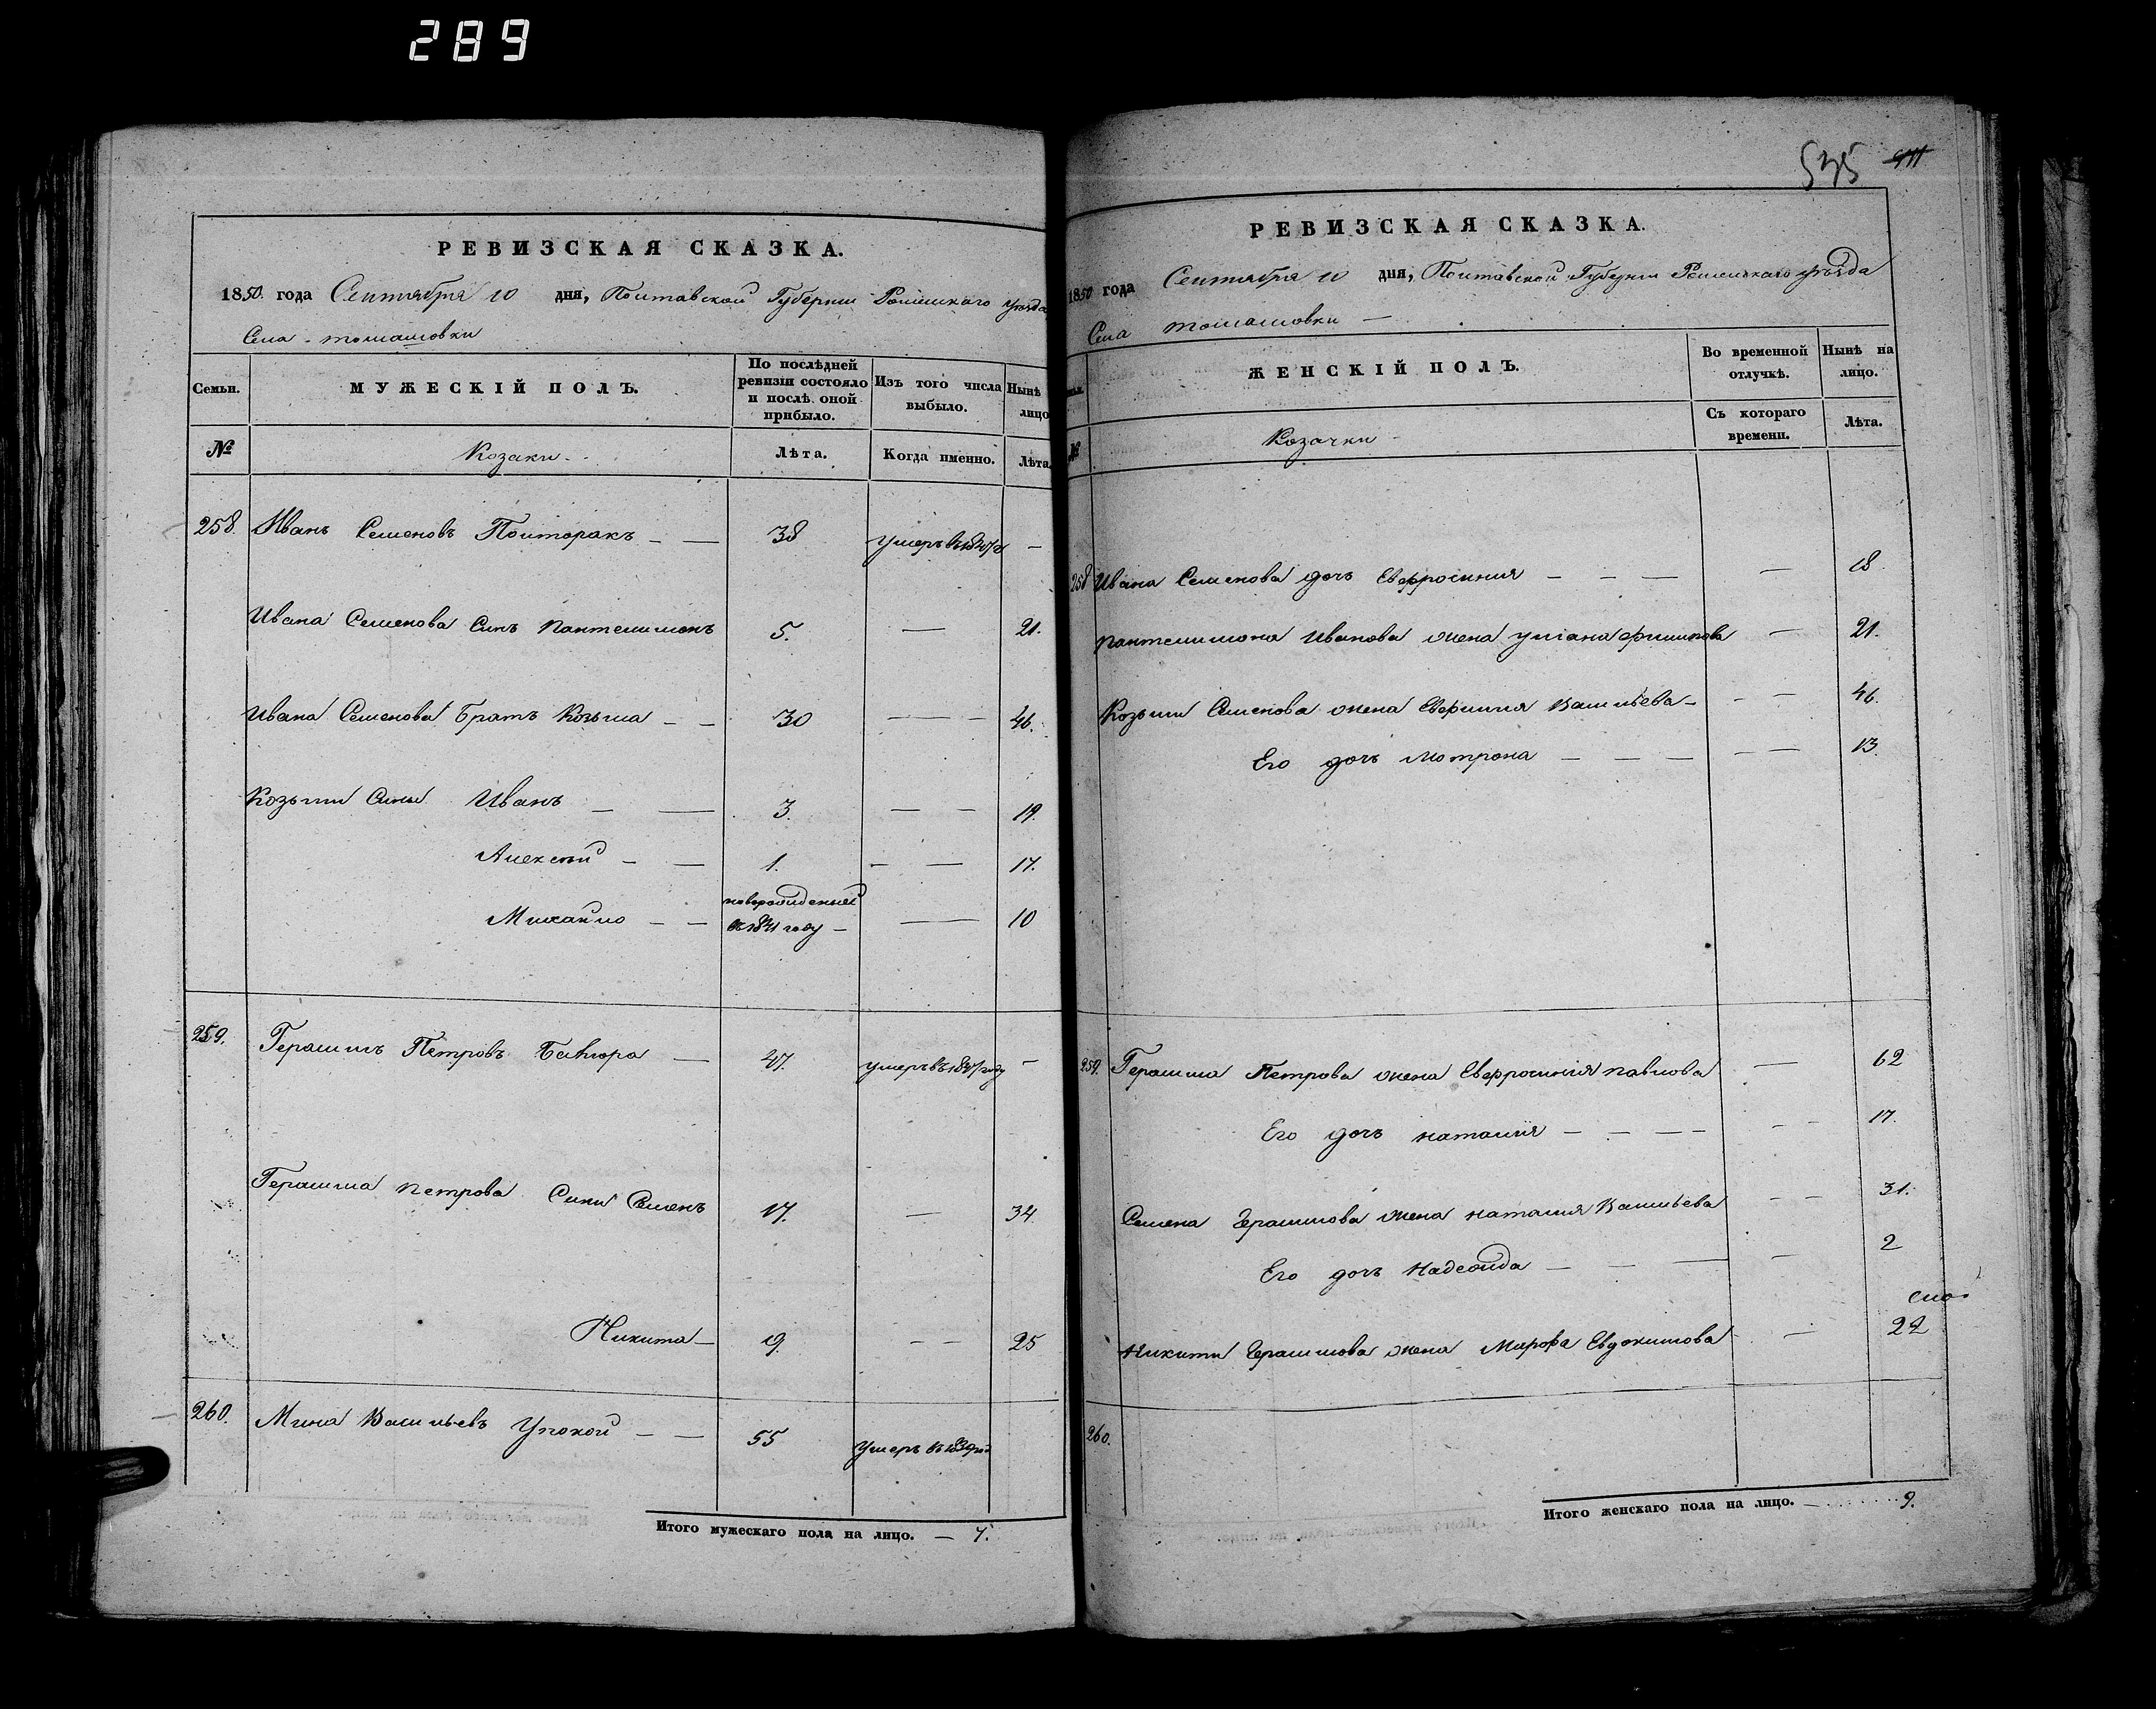 289
535 511
РЕВИЗСКАЯ СКАЗКА.
1850. года Сентября 10 дня, Полтавской Губернии Роменскаго уезда
Села Томашовки
Семьи. МУЖЕСКІЙ ПОЛЪ. По послѣдней ревизіи состояло и послѣ оной прибыло. Изъ того числа выбыло. Нынѣ лицо
№ Козаки. Лѣта. Когда именно. Лѣта.
258. Иванъ Семеновъ Полторакъ — — 38 умеръ въ —
Ивана Семенова Синъ Пантелимонъ 5. — 21.
Ивана Семенова Братъ Козьма — — 30 — — 46.
Козьми Сины Иванъ — — 3. — — 19.
Алексѣй — — 1. — — 17.
Михайло — — новорожденый въ 1841 году — — 10
259. Герасимъ Петровъ — 47. умеръ въ году —
Герасима Петрова Сини Семенъ 17. — 34.
Никита — 9. — — 25
260. Мина Васильевъ — — 55 умеръ въ 1839 год
Итого мужескаго пола на лицо. — 7.
РЕВИЗСКАЯ СКАЗКА.
1850 года Сентября 10 дня, Полтавской Губернии Роменскаго уѣзда
Села Томашовки —
ЖЕНСКІЙ ПОЛЪ. Во временной отлучкѣ. Нынѣ на лицо.
№ Козачки Съ котораго времени. Лѣта.
258 Ивана Семенова дочь Евфросиния — — — — 18.
Пантелимона Иванова жена Улiана Филипова — 21.
Козьми Семенова жена Евфимия Васильева — — — 46.
Его дочь Мотрона — — — — — 13.
259. Герасима Петрова жена Евфросиния Павлова — 62
Его дочь Наталия — — — — — — 17.
Семена Герасимова жена Наталия Васильева — — 31.
Его дочь Надежда — — — — 2
Никити Герасимова жена Марфа Евдокимова — 22
260.
Итого женскаго пола на лицо. — 9.